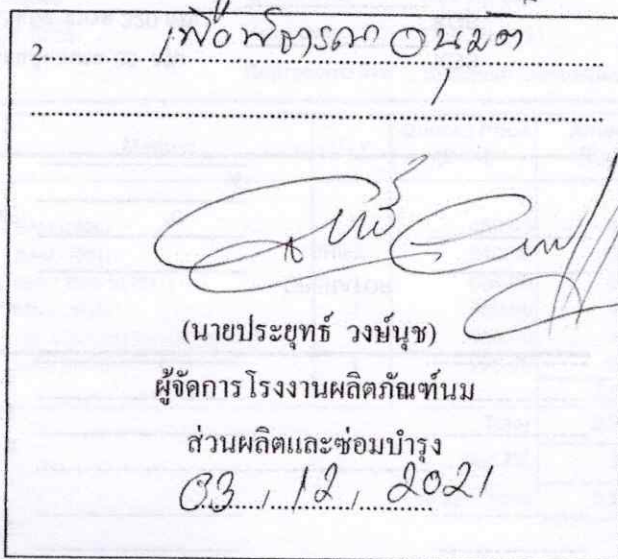 2. เพื่อพิจารณาอนุมัติ
(นายประยุทธ์ วงษ์นุช)
ผู้จัดการโรงงานผลิตภัณฑ์นม
ส่วนผลิตและซ่อมบำรุง
03, 12, 2021